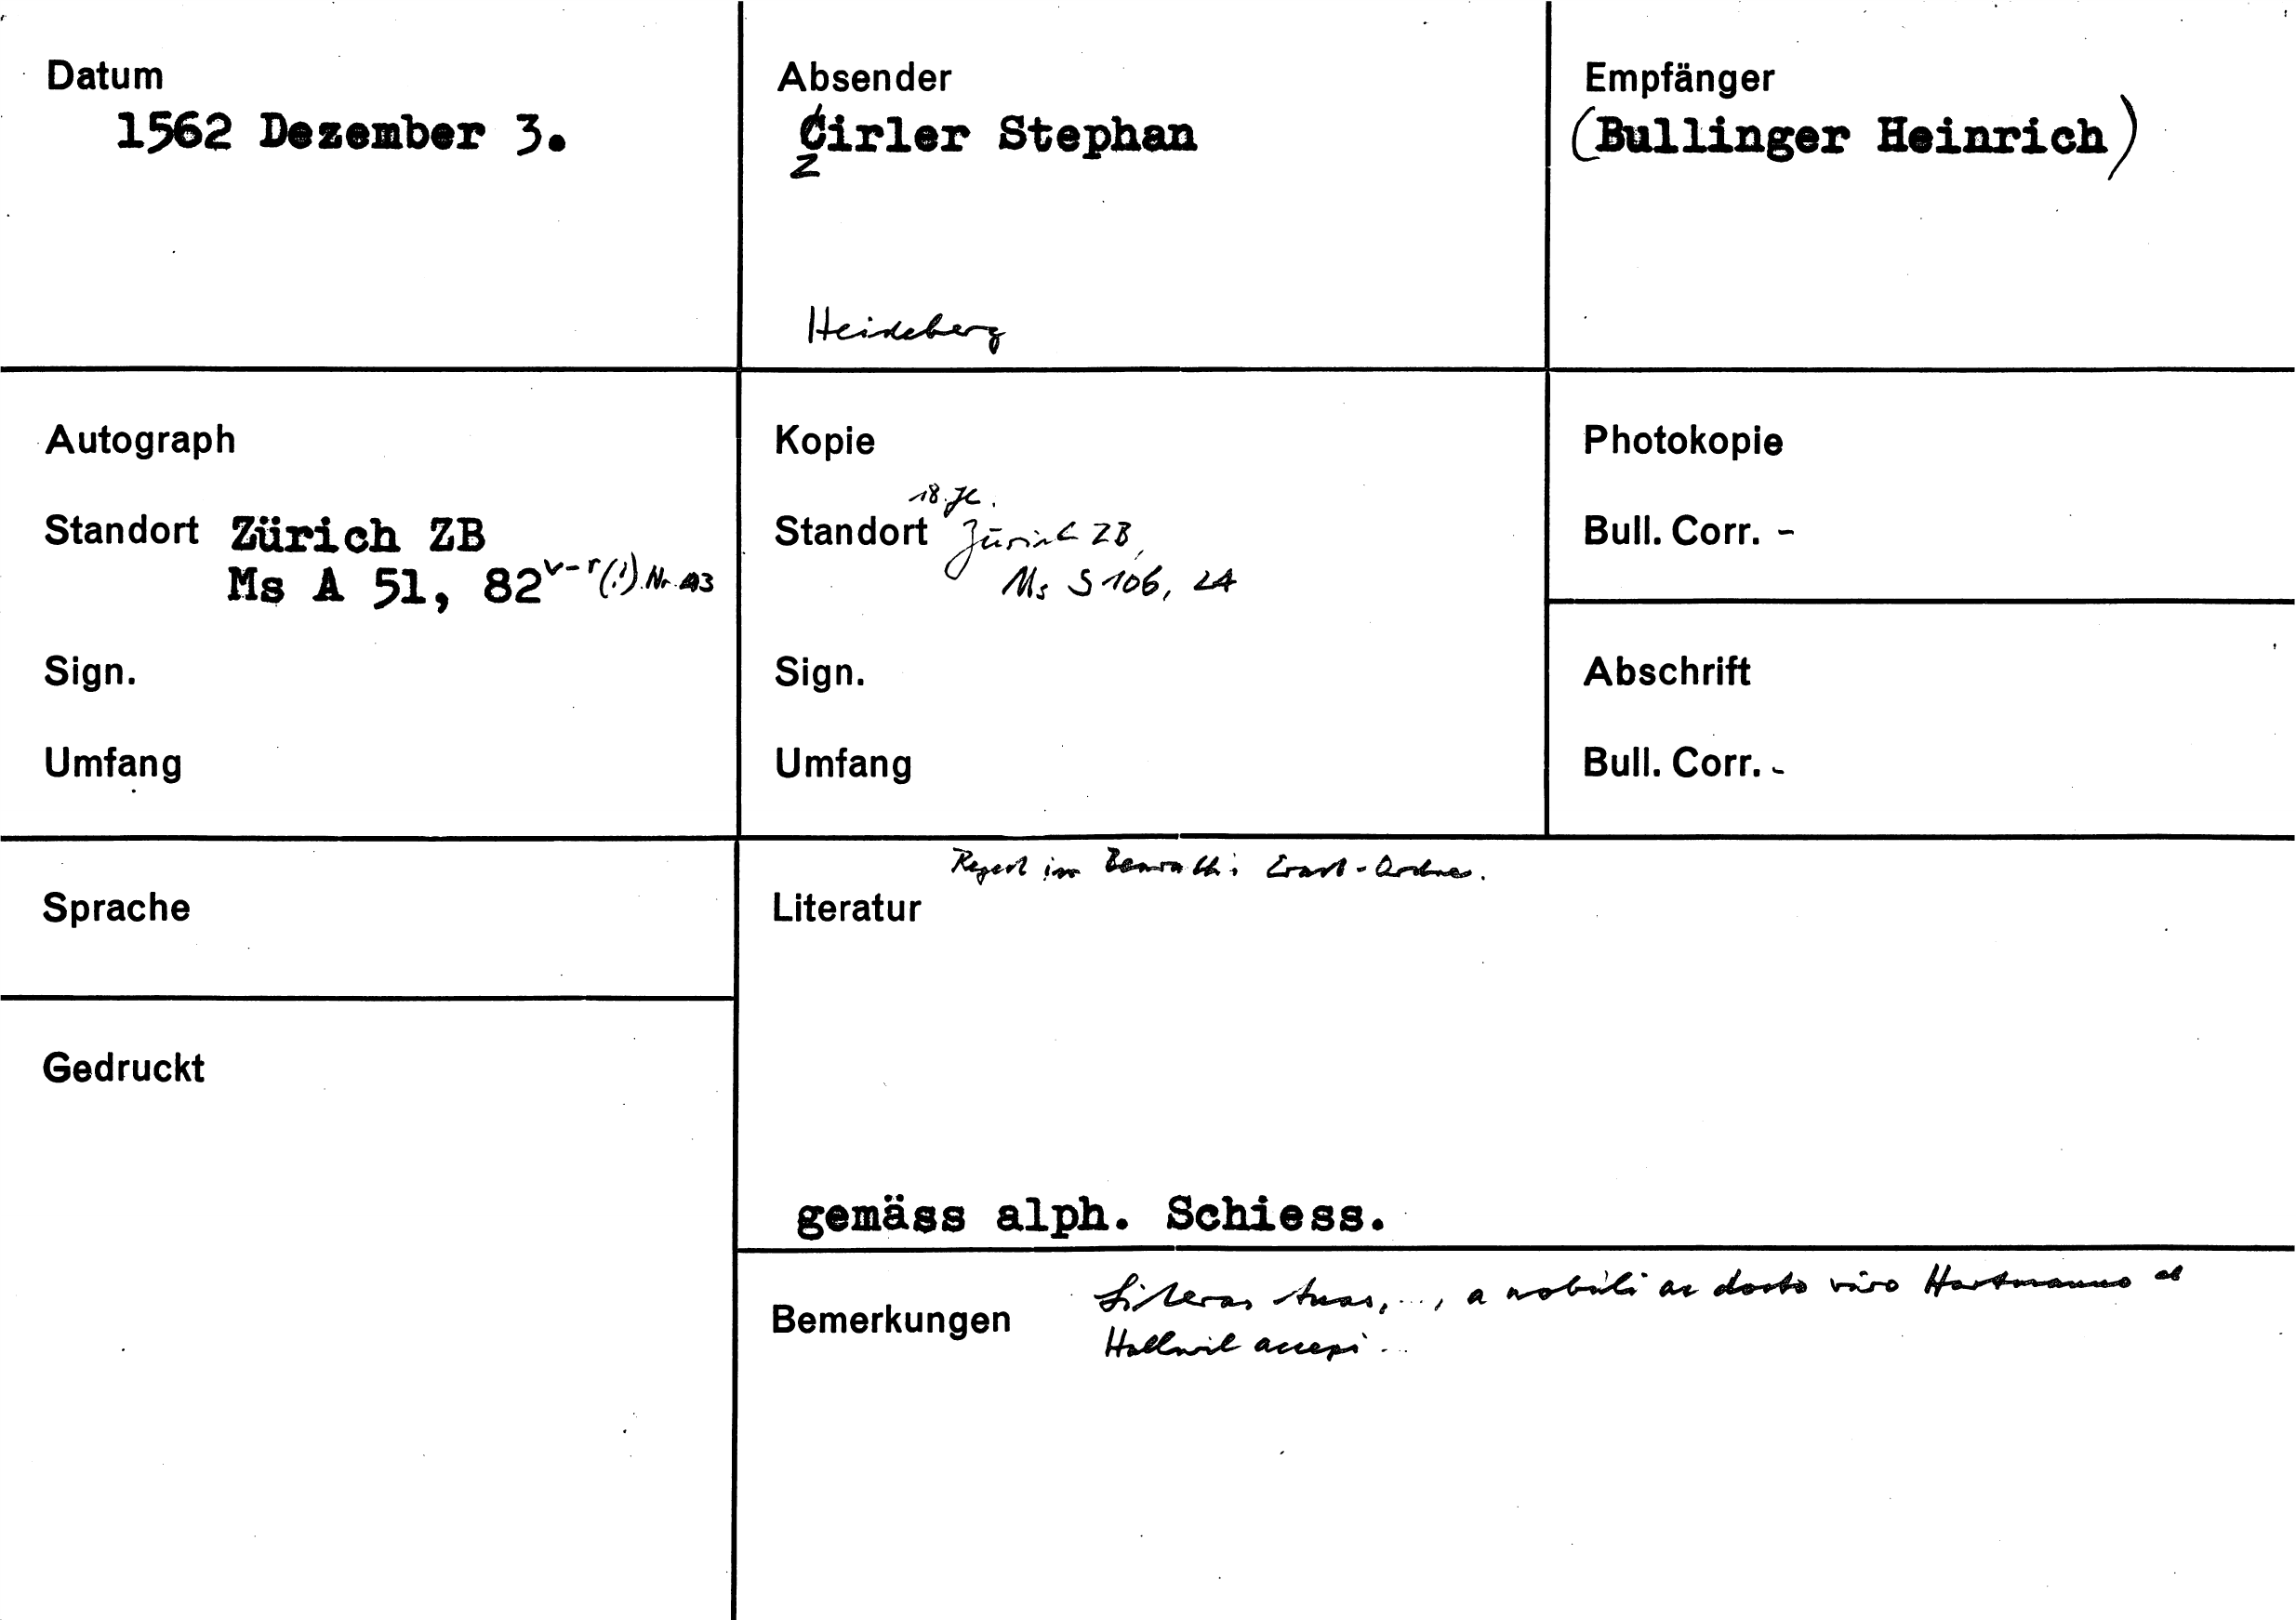 Datum
1562 Dezember 3.
Absender
Cirler Stephan
Z
Heidelberg
Empfänger
(Bullinger Heinrich)
Autograph
Standort Zürich ZB
Ms A 51, 82v-r(!) Nr. 43
Sign.
Umfang
Kopie
18. Jh.
Standort Zürich ZB,
Ms S 106, 24
Sign.
Umfang
Photokopie
Bull. Corr. -
Abschrift
Bull. Corr. -
Sprache
Gedruckt
Regest im Benrath: Erast-Ordner.
Literatur
gemäss alph. Schiess.
Bemerkungen
Literas tuas, ..., a nobili ac docto viro Hartmanno ab
Hallwil accepi ...